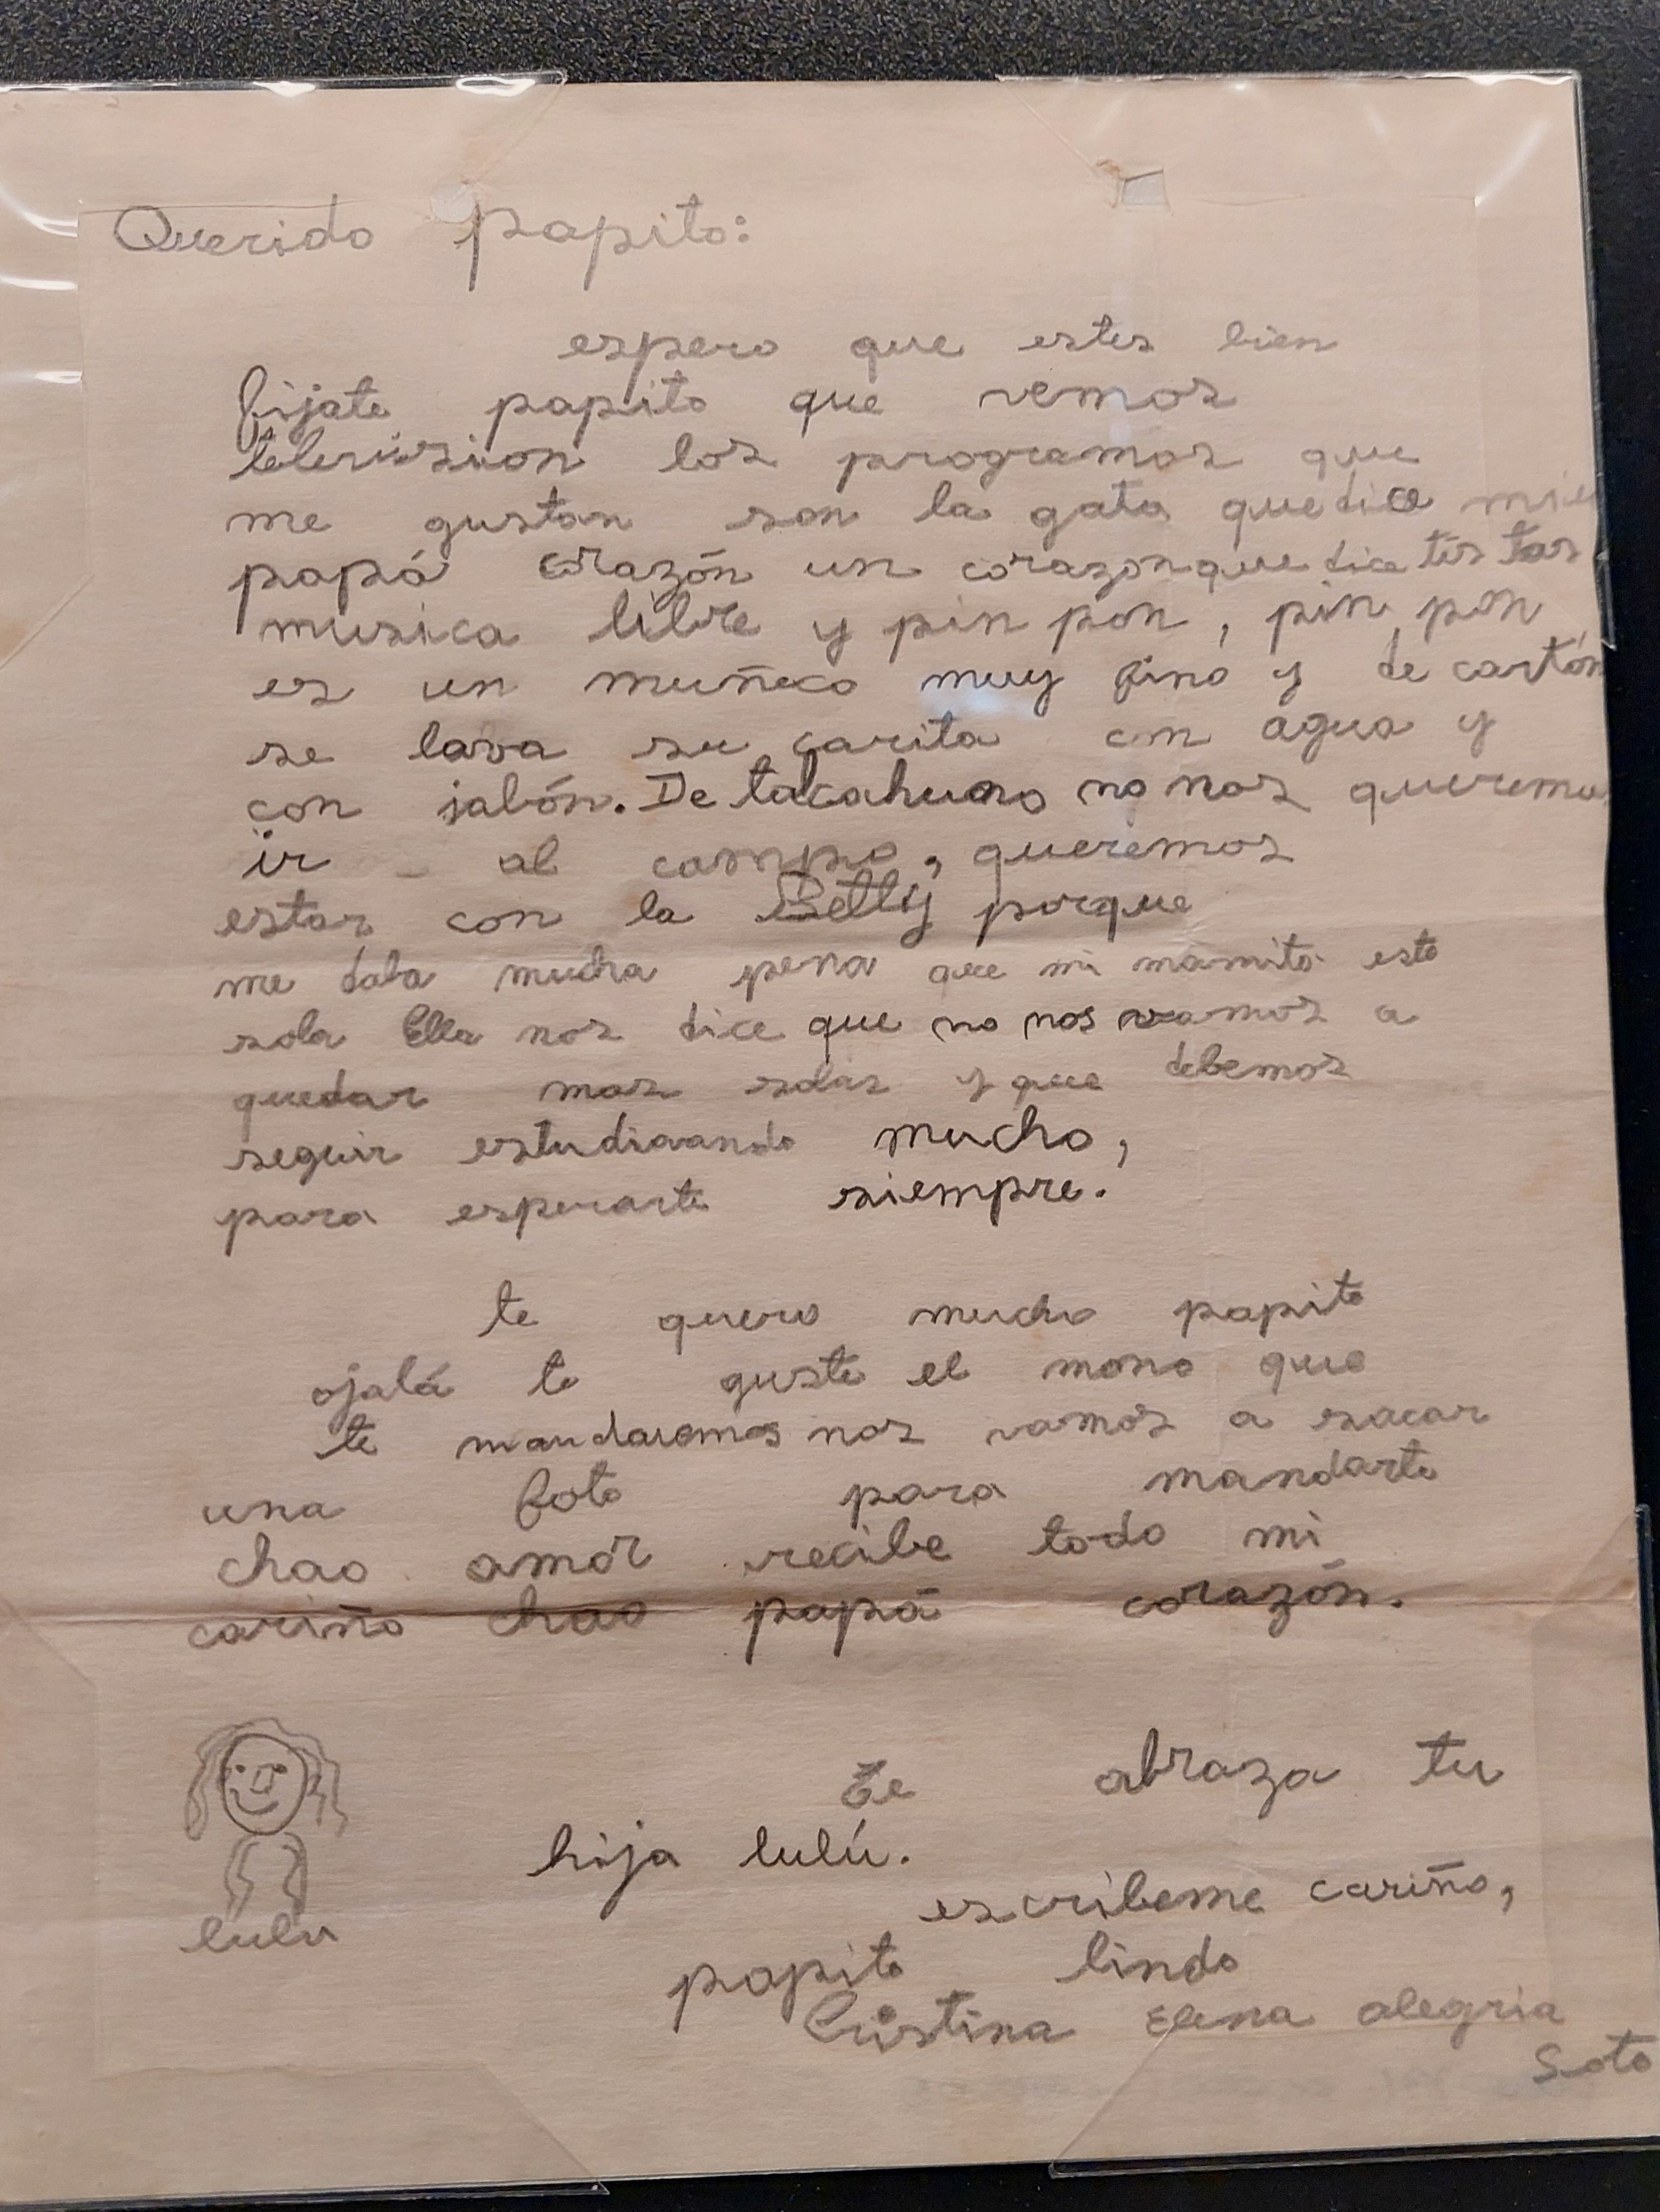 Querido papito:
espero que estes bien
fijate papito que vemos
television los programas que
me gustan son la gata que dice
papá corazón un corazon que dice tis tas
musica libre y pin pon, pin pon
es un muñeco muy fino y de cartón
se lava su carita con agua y
con jabón. De no nos queremos
ir al campo, queremos
estar con la Betty porque
me daba mucha pena que mi mamita este
sola Ella nos dice que no nos vamos a
quedar mas solas y que debemos
seguir mucho,
para esperarte siempre.
te quero mucho papito
ojalá te guste el mono que
te mandaremos nos vamos a sacar
una foto para mandarte
chao amor recibe todo mi
cariño chao papá corazón.
Te abraza tu
hija lulú.
escribeme cariño,
papito lindo
Cristina Elena alegria
Soto
lulu